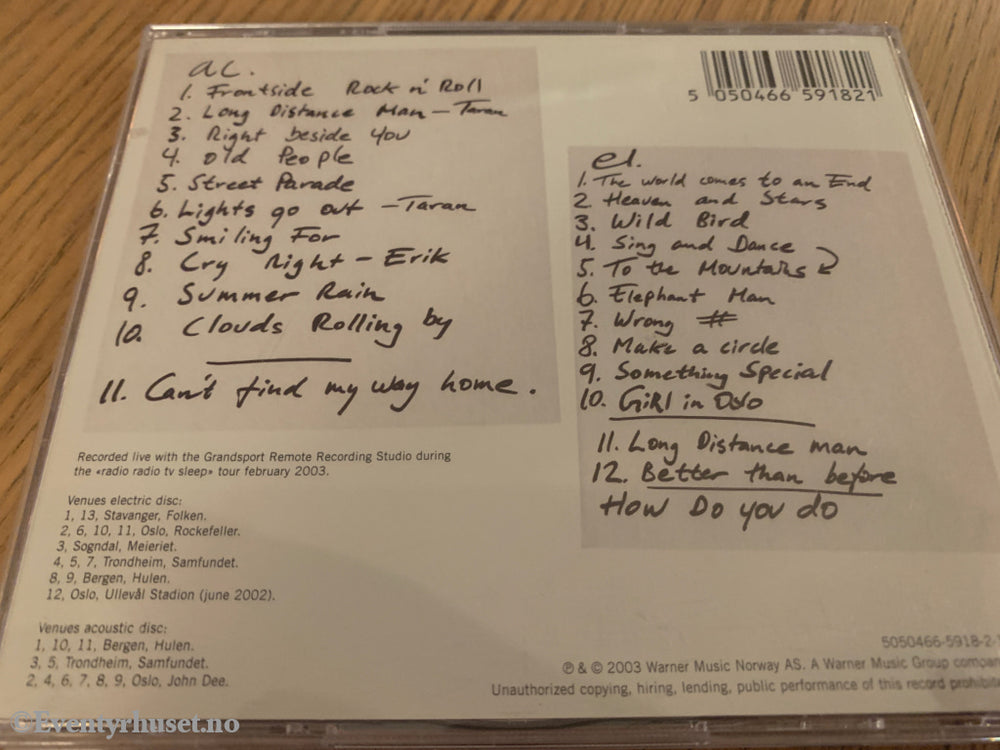 ac.
1. Frontside Rock n' Roll
2. Long Distance Man - Taran
3. Right beside you
4. Old People
5. Street Parade
6. Lights go out - Taran
7. Smiling For
8. Cry Right - Erik
9. Summer Rain
10. Clouds Rolling by
11. Can't find my way home.
Recorded live with the Grandsport Remote Recording Studio during
the «radio radio tv sleep» tour february 2003.
Venues electric disc:
1, 13, Stavanger, Folken.
2, 6, 10, 11, Oslo, Rockefeller.
3, Sogndal, Meieriet.
4, 5, 7, Trondheim, Samfundet.
8, 9, Bergen, Hulen.
12, Oslo, Ullevål Stadion (june 2002).
Venues acoustic disc:
1, 10, 11, Bergen, Hulen.
3, 5, Trondheim, Samfundet.
2, 4, 6, 7, 8, 9, Oslo, John Dee.
5 050466 591821
el.
1. The world comes to an End
2 Heaven and Stars
3. Wild Bird
4. Sing and Dance
5. To the Mountains
6. Elephant Man
7. Wrong #
8. Make a circle
9. Something Special
10. Girl in Oslo
11. Long Distance man
12. Better than before
How Do you do
5050466-5918-2-
℗ & © 2003 Warner Music Norway AS. A Warner Music Group compan
Unauthorized copying, hiring, lending, public performance of this record prohibite
©Eventyrhuset.no